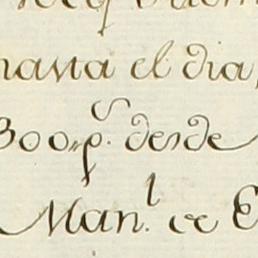 hasta el dia
300 p.s desde
Man.l de E